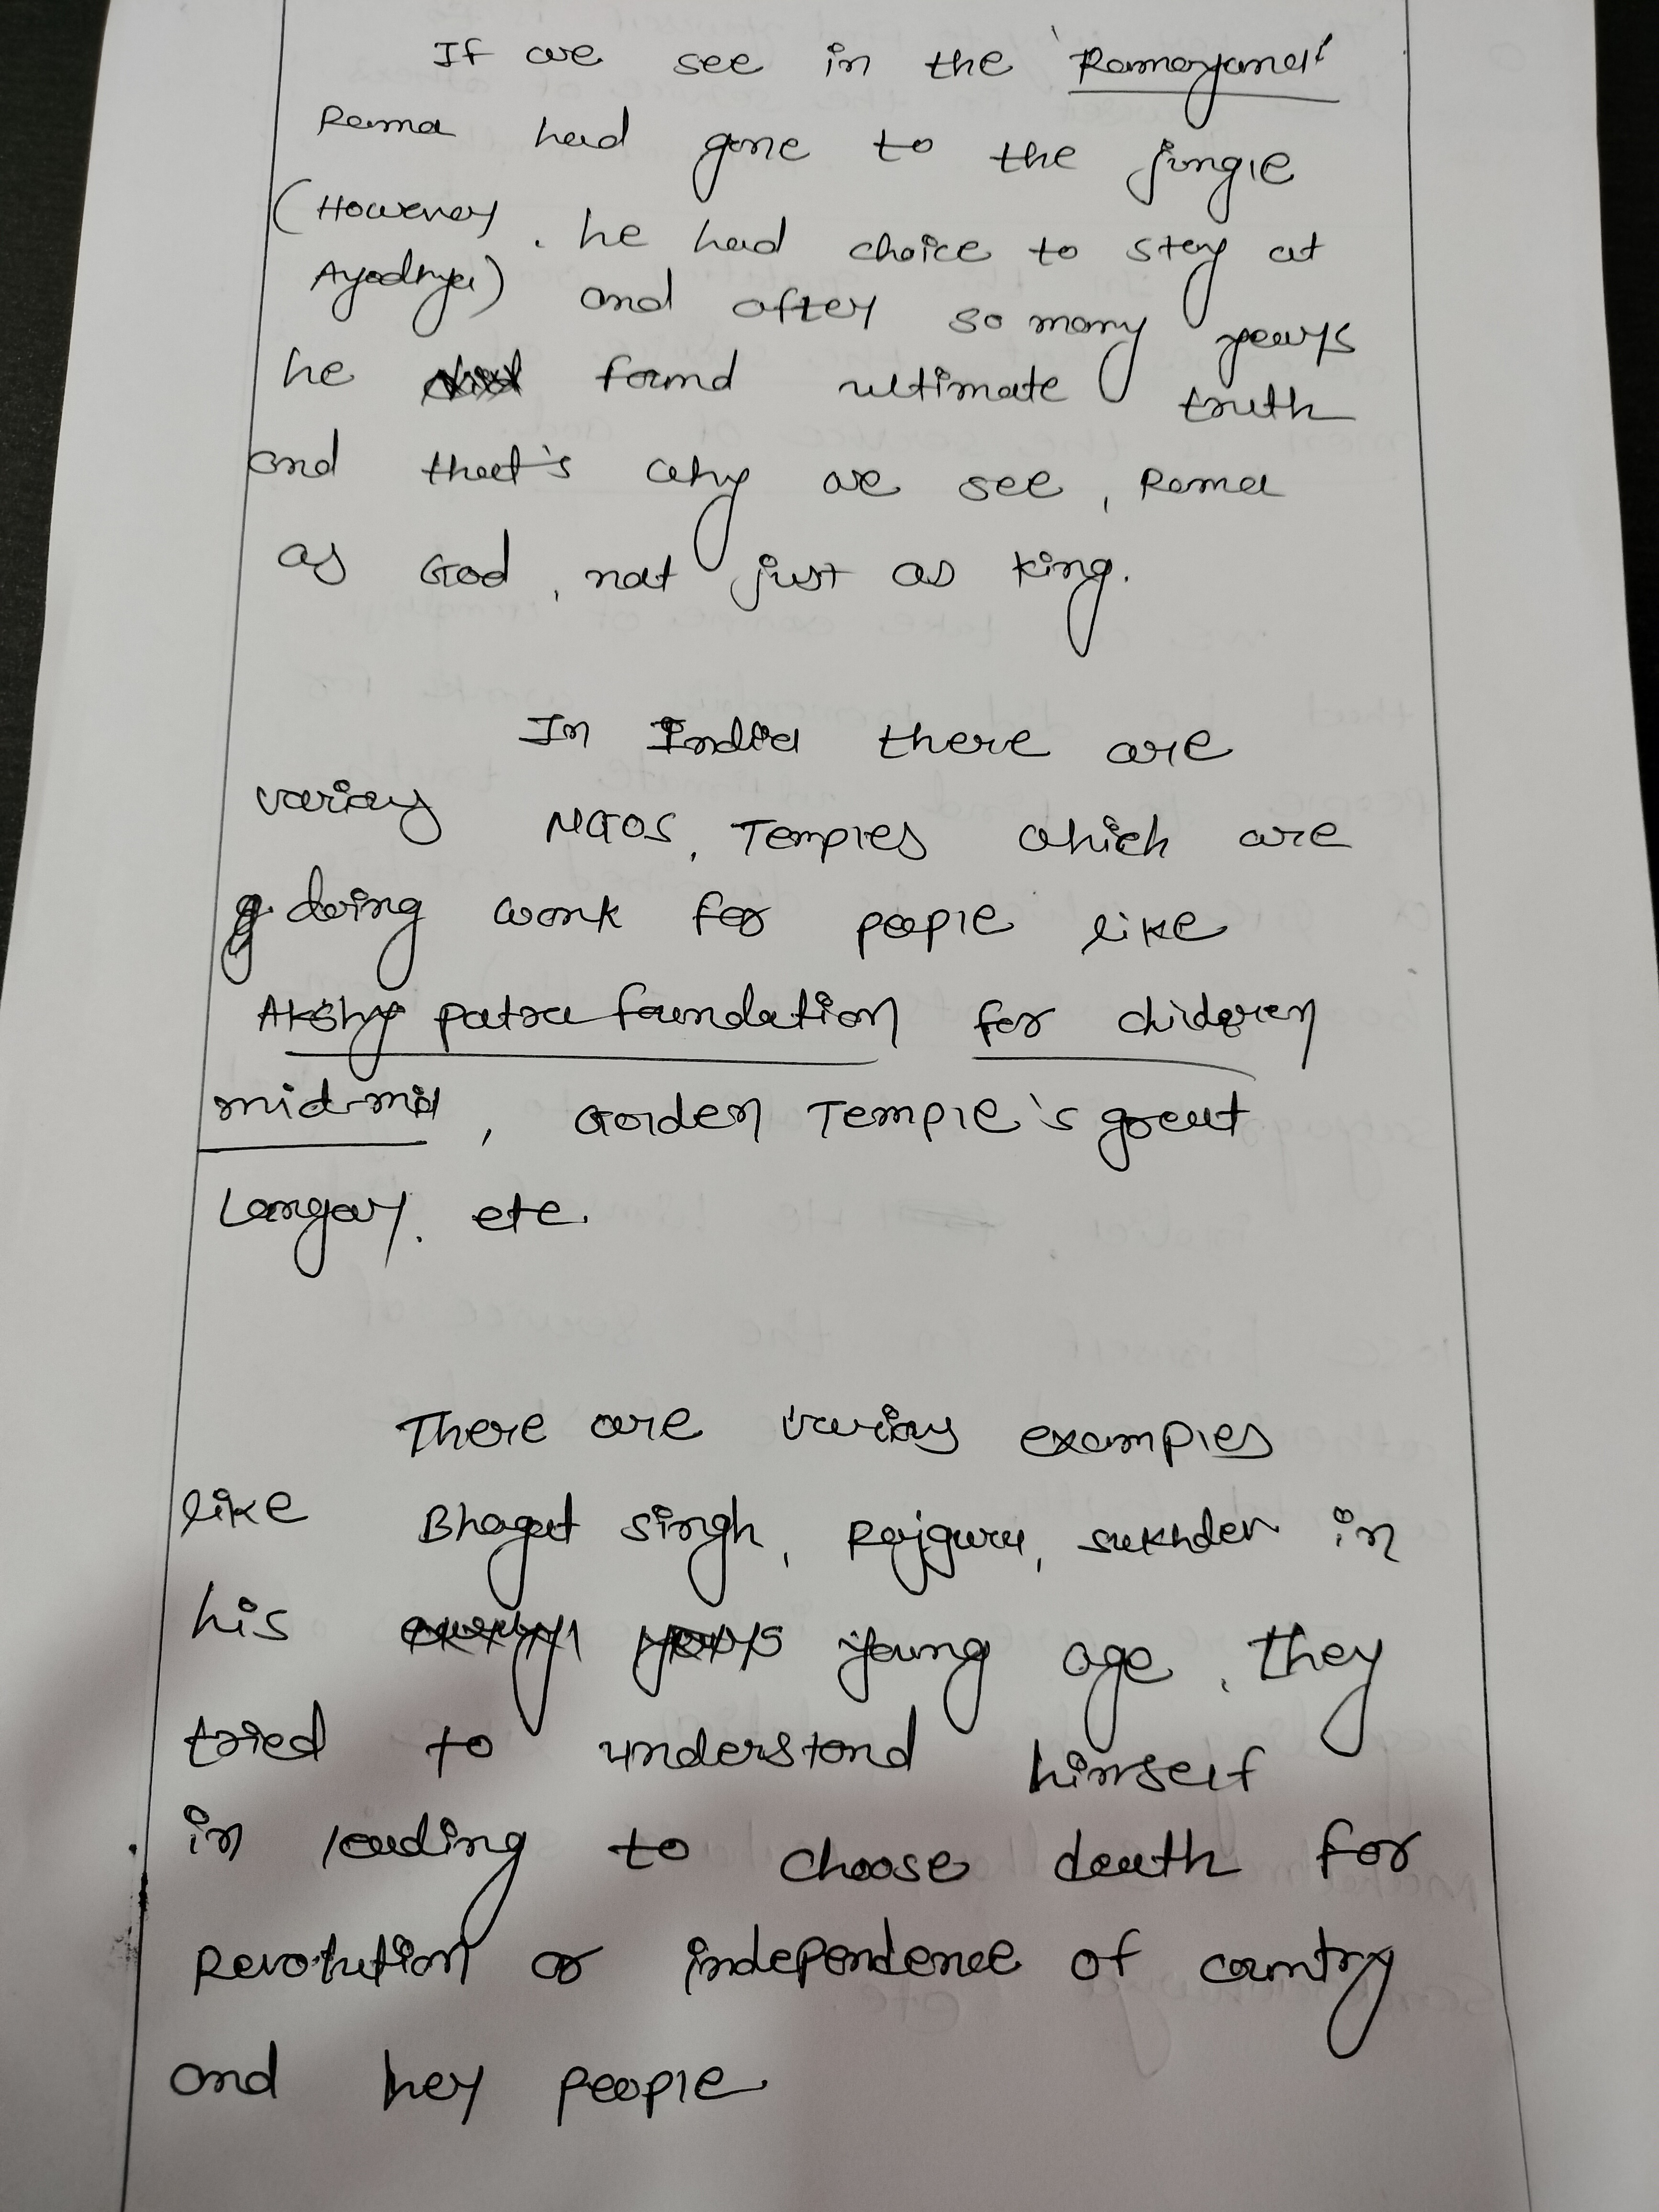 If we see in the 'Ramayana'
Rama had gone to the jungle
(However, he had choice to stay at
Ayodhya) and after so many years
he found ultimate truth
and that's why we see, Rama
as God, not just as king.
In India there are
varioys NGOs, Temples which are
doing work for people like
Akshy patra foundation for children
mid-mil, Golden Temple's great
Langar, etc.
There are varioys examples
like Bhagat singh, Rajguru, sukhdev in
his young age, they
tried to understand himself
in leading to choose death for
Revolution or independence of country
and her people